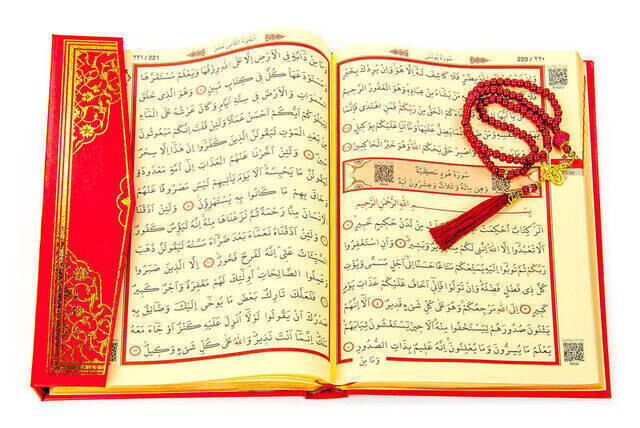 سُورَةُ يُونُسَ
220 / ٢٢٠
بِضُرٍّ فَلَا كَاشِفَ لَهُ إِلَّا هُوَ وَإِنْ يُرِدْكَ بِخَيْرٍ
مَنْ يَشَاءُ مِنْ عِبَادِهِ وَهُوَ الْغَفُورُ الرَّحِيمُ
الْحَقُّ مِنْ رَبِّكُمْ فَمَنِ اهْتَدَى فَإِنَّمَا
وَمَا أَنَا عَلَيْكُمْ بِوَكِيلٍ
حَتَّى يَحْكُمَ اللَّهُ وَهُوَ خَيْرُ الْحَاكِمِينَ
سُورَةُ هُودٍ مَكِّيَّةٌ
وَهِيَ مِائَةٌ وَثَلَاثٌ وَعِشْرُونَ آيَةً
بِسْمِ اللَّهِ الرَّحْمَنِ الرَّحِيمِ
الر كِتَابٌ أُحْكِمَتْ آيَاتُهُ ثُمَّ فُصِّلَتْ مِنْ لَدُنْ حَكِيمٍ خَبِيرٍ
أَلَّا تَعْبُدُوا إِلَّا اللَّهَ إِنَّنِي لَكُمْ مِنْهُ نَذِيرٌ وَبَشِيرٌ وَأَنِ اسْتَغْفِرُوا
رَبَّكُمْ ثُمَّ تُوبُوا إِلَيْهِ يُمَتِّعْكُمْ مَتَاعًا حَسَنًا إِلَى أَجَلٍ مُسَمًّى وَيُؤْتِ
كُلَّ ذِي فَضْلٍ فَضْلَهُ وَإِنْ تَوَلَّوْا فَإِنِّي أَخَافُ عَلَيْكُمْ عَذَابَ يَوْمٍ
كَبِيرٍ إِلَى اللَّهِ مَرْجِعُكُمْ وَهُوَ عَلَى كُلِّ شَيْءٍ قَدِيرٌ أَلَا إِنَّهُمْ
يَثْنُونَ صُدُورَهُمْ لِيَسْتَخْفُوا مِنْهُ أَلَا حِينَ يَسْتَغْشُونَ ثِيَابَهُمْ
يَعْلَمُ مَا يُسِرُّونَ وَمَا يُعْلِنُونَ إِنَّهُ عَلِيمٌ بِذَاتِ الصُّدُورِ
وَمَا مِنْ
اَلْجُزْءُ الثَّانِي عَشَرَ
٢٢١ / 221
وَمَا مِنْ دَابَّةٍ فِي الْأَرْضِ إِلَّا عَلَى اللَّهِ رِزْقُهَا وَيَعْلَمُ مُسْتَقَرَّهَا
وَمُسْتَوْدَعَهَا كُلٌّ فِي كِتَابٍ مُبِينٍ وَهُوَ الَّذِي خَلَقَ
السَّمَوَاتِ وَالْأَرْضَ فِي سِتَّةِ أَيَّامٍ وَكَانَ عَرْشُهُ عَلَى الْمَاءِ
لِيَبْلُوَكُمْ أَيُّكُمْ أَحْسَنُ عَمَلًا وَلَئِنْ قُلْتَ إِنَّكُمْ مَبْعُوثُونَ
مِنْ بَعْدِ الْمَوْتِ لَيَقُولَنَّ الَّذِينَ كَفَرُوا إِنْ هَذَا إِلَّا سِحْرٌ
مُبِينٌ وَلَئِنْ أَخَّرْنَا عَنْهُمُ الْعَذَابَ إِلَى أُمَّةٍ مَعْدُودَةٍ
لَيَقُولُنَّ مَا يَحْبِسُهُ أَلَا يَوْمَ يَأْتِيهِمْ لَيْسَ مَصْرُوفًا عَنْهُمْ
وَحَاقَ بِهِمْ مَا كَانُوا بِهِ يَسْتَهْزِؤُنَ وَلَئِنْ أَذَقْنَا
الْإِنْسَانَ مِنَّا رَحْمَةً ثُمَّ نَزَعْنَاهَا مِنْهُ إِنَّهُ لَيَؤُسٌ كَفُورٌ
وَلَئِنْ أَذَقْنَاهُ نَعْمَاءَ بَعْدَ ضَرَّاءَ مَسَّتْهُ لَيَقُولَنَّ ذَهَبَ
السَّيِّئَاتُ عَنِّي إِنَّهُ لَفَرِحٌ فَخُورٌ إِلَّا الَّذِينَ صَبَرُوا
وَعَمِلُوا الصَّالِحَاتِ أُولَئِكَ لَهُمْ مَغْفِرَةٌ وَأَجْرٌ كَبِيرٌ
فَلَعَلَّكَ تَارِكٌ بَعْضَ مَا يُوحَى إِلَيْكَ وَضَائِقٌ بِهِ
صَدْرُكَ أَنْ يَقُولُوا لَوْلَا أُنْزِلَ عَلَيْهِ كَنْزٌ أَوْ جَاءَ مَعَهُ
مَلَكٌ إِنَّمَا أَنْتَ نَذِيرٌ وَاللَّهُ عَلَى كُلِّ شَيْءٍ وَكِيلٌ